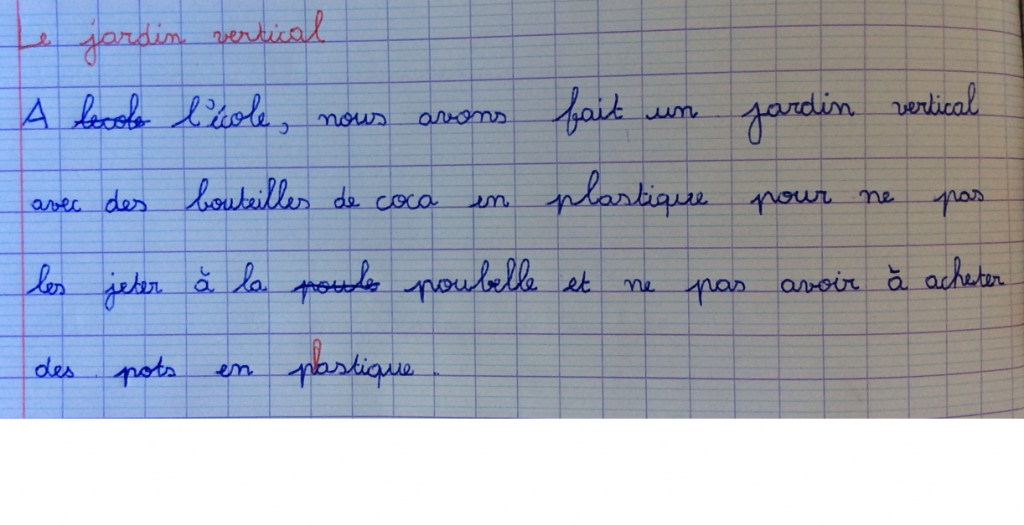 Le jardin vertical
A l'école, nous avons fait un jardin vertical
avec des bouteilles de coca en plastique pour ne pas
les jeter à la poubelle et ne pas avoir à acheter
des pots en plastique.